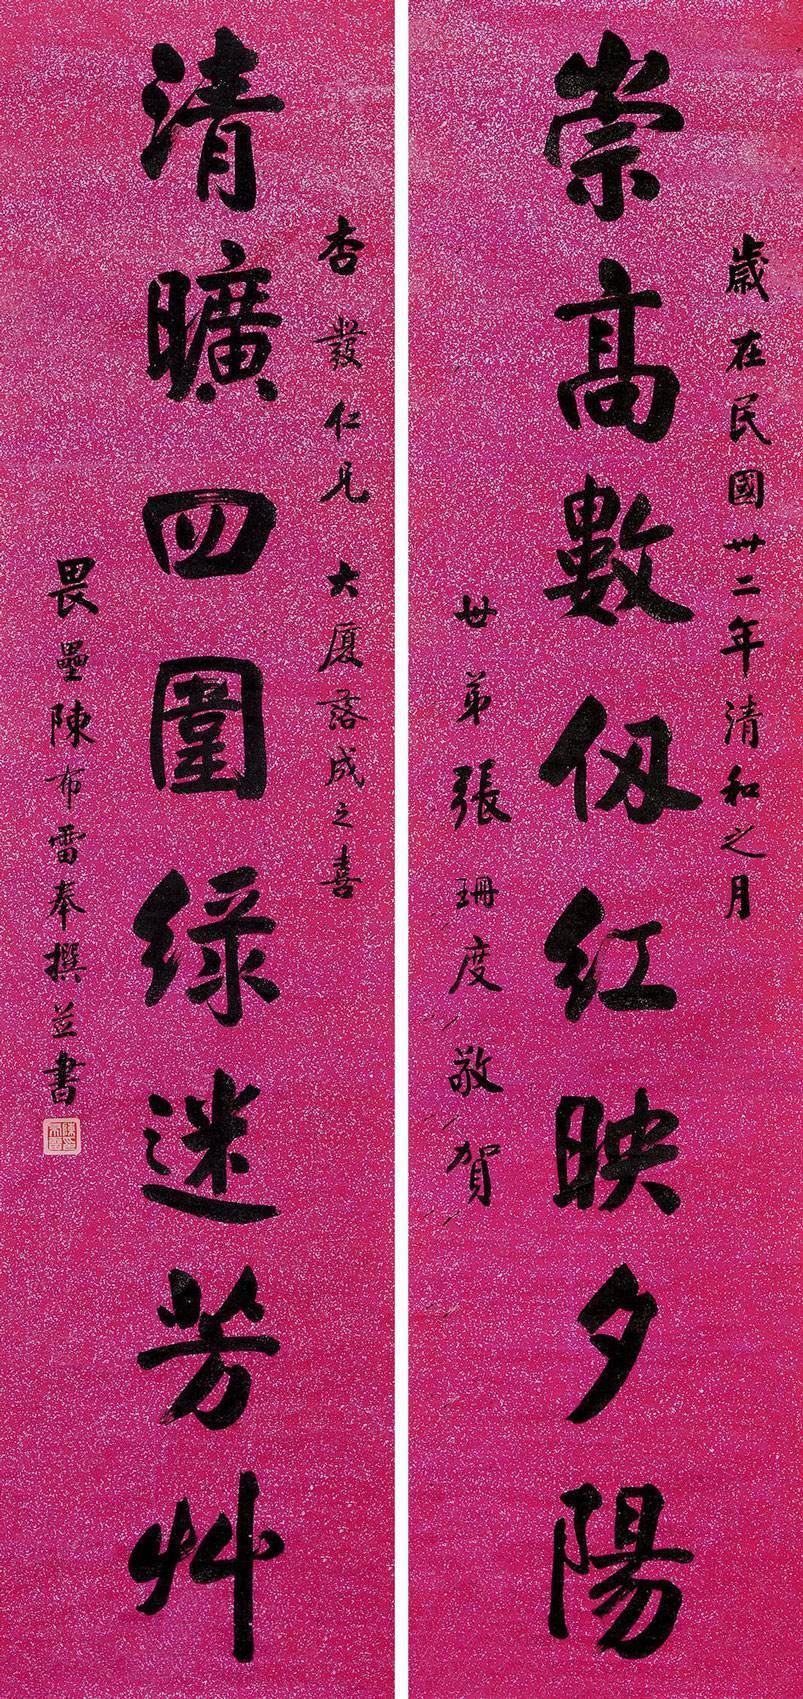 歲在民國卅二年清和之月
崇高數仭紅映夕陽
世弟張珊度敬賀
杏發仁兄大廈落成之喜
清曠四圍綠迷芳艸
畏壘陳布雷奉撰並書